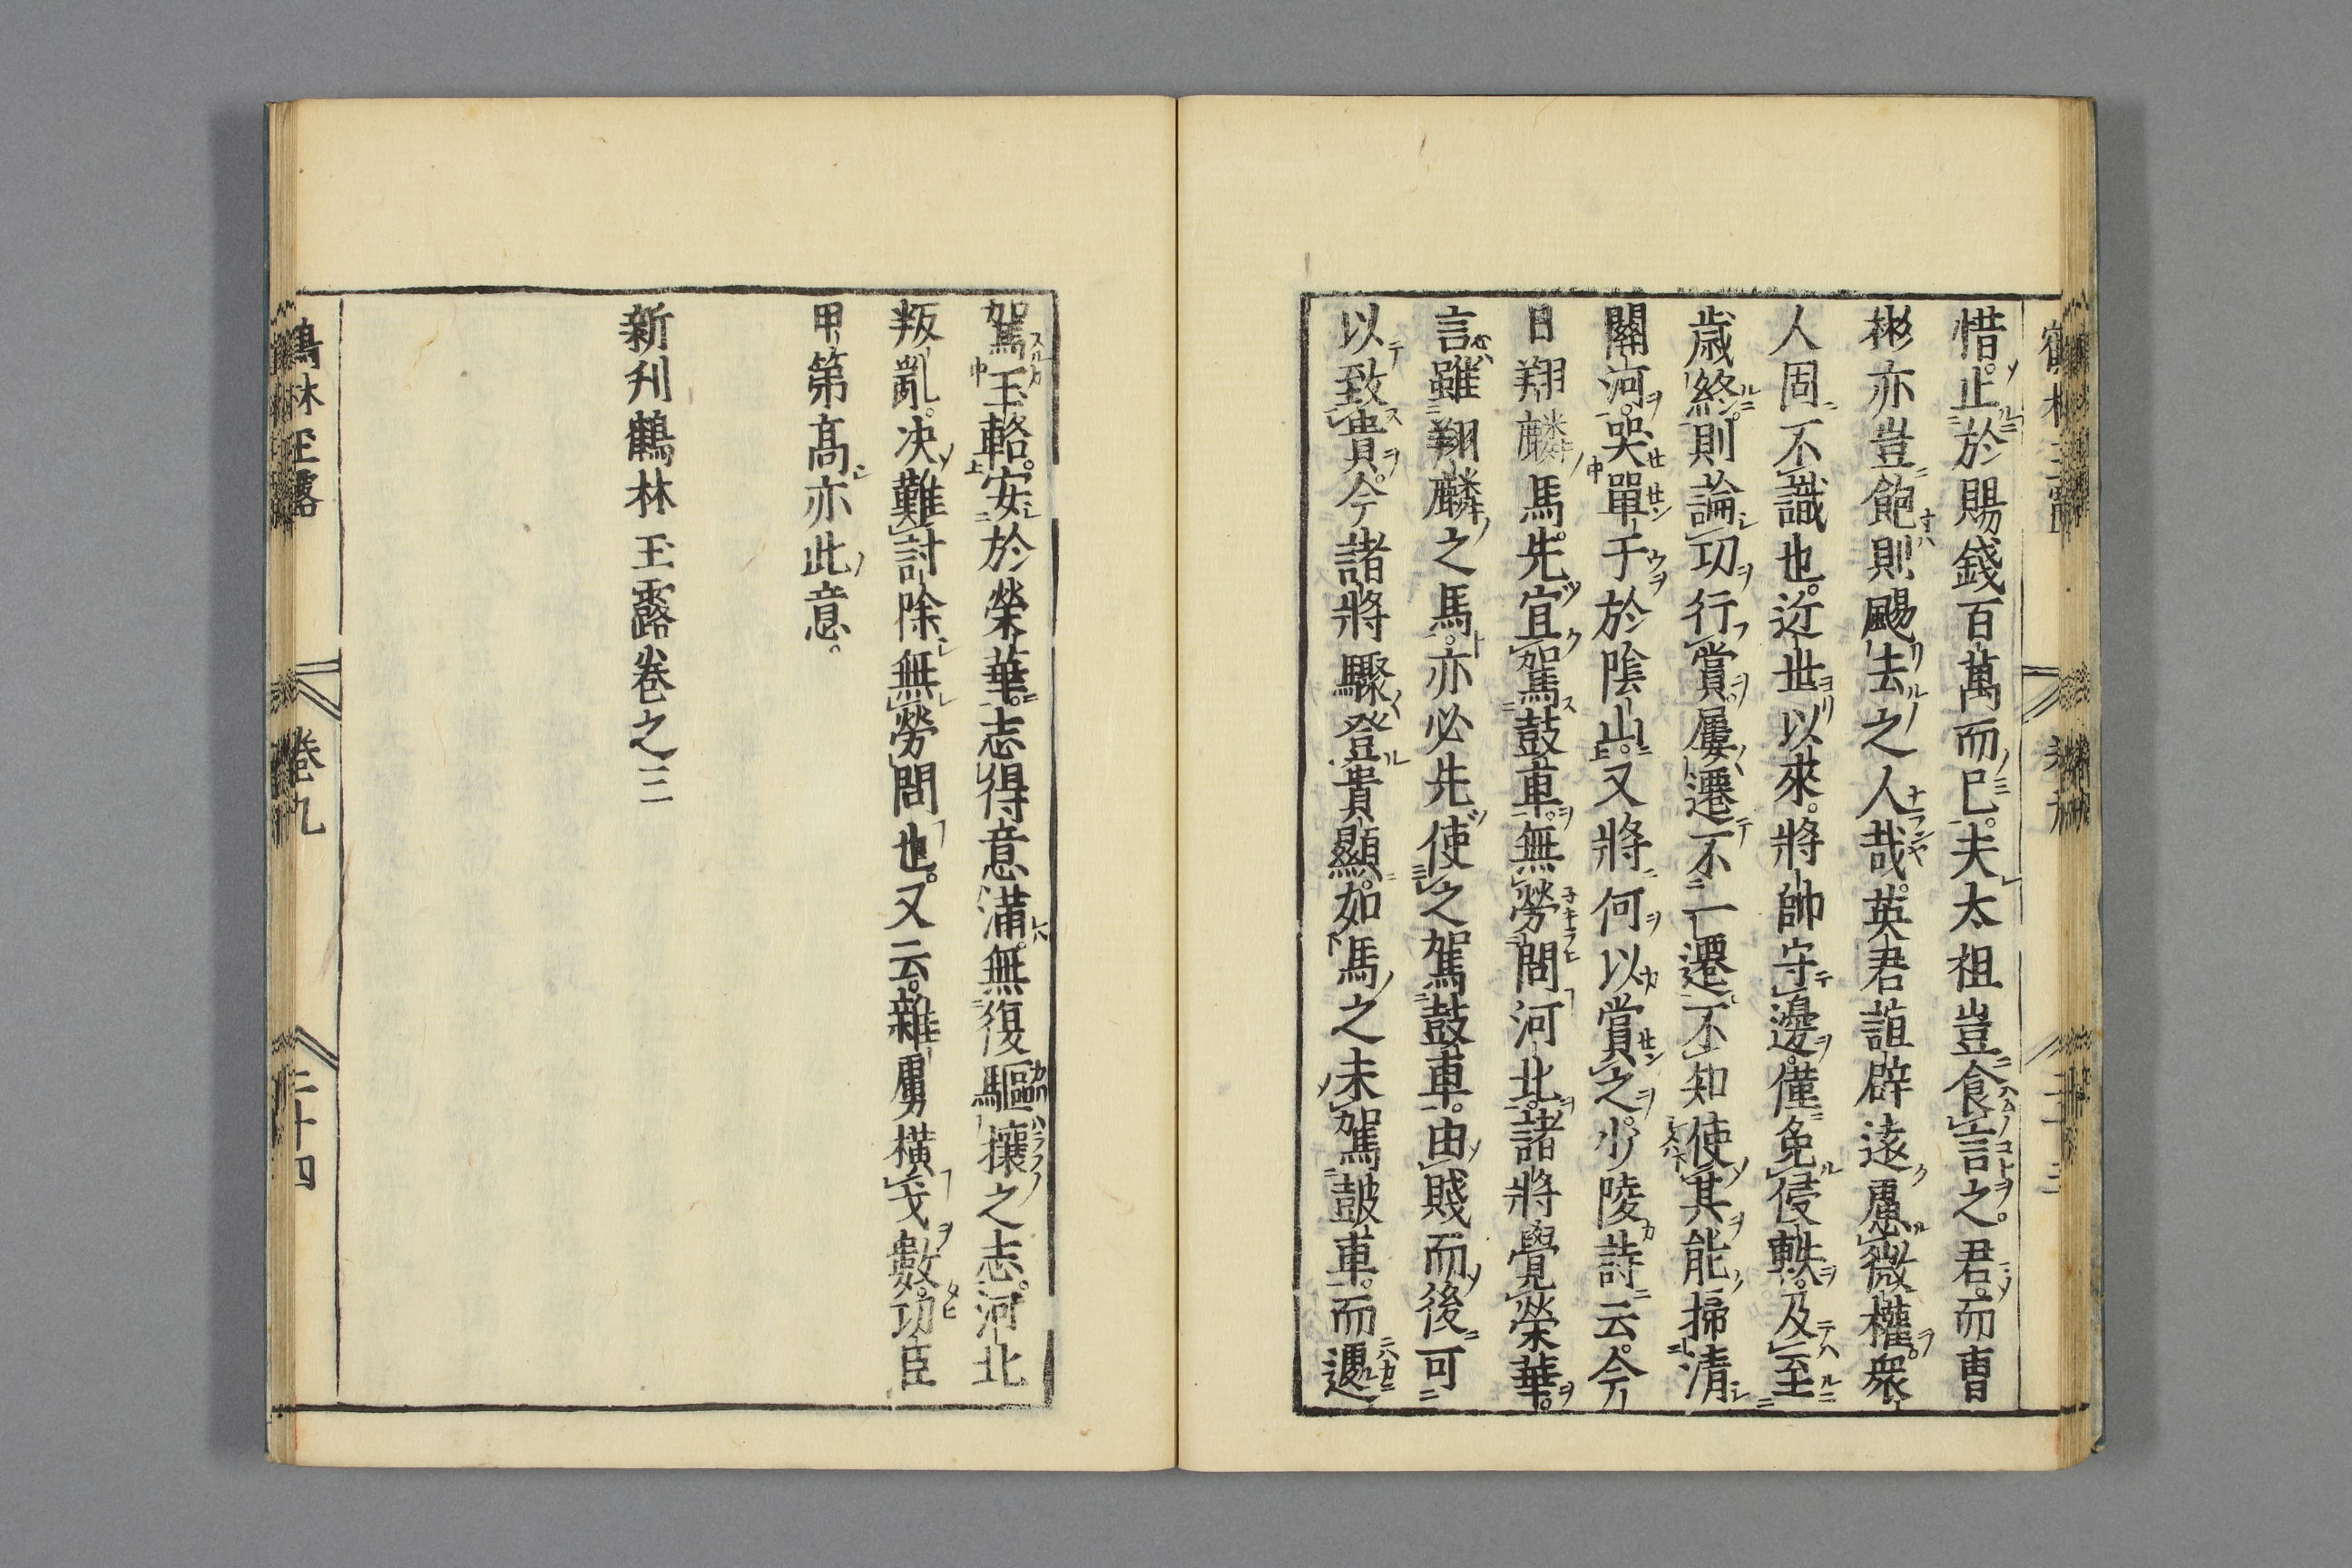 惜。止於賜錢百萬而已。夫太祖豈食言之君。而曹
彬亦豈飽則颺去之人哉。英君誼辟遠慮微權。衆
人固不識也。近世以來。將帥守邊。僅免侵軼。及至
歲終。則論功行賞。屢遷不一遷。不知使其能掃清
關河。哭單于於陰山。又將何以賞之。少陵詩云。今
日翔麟馬。先宜駕鼓車。無勞問河北。諸將覺榮華。
言雖翔麟之馬。亦必先使之駕鼓車。由賤而後可
以致貴。今諸將驟登貴顯。如馬之未駕皷車。而遽
駕玉輅。安於榮華。志得意滿。無復驅攘之志。河北
叛亂。决難討除。無勞問也。又云。雜虜橫戈數。功臣
甲第高。亦此意。
新刋鶴林玉露卷之三
鶴林玉露　卷九　二十四